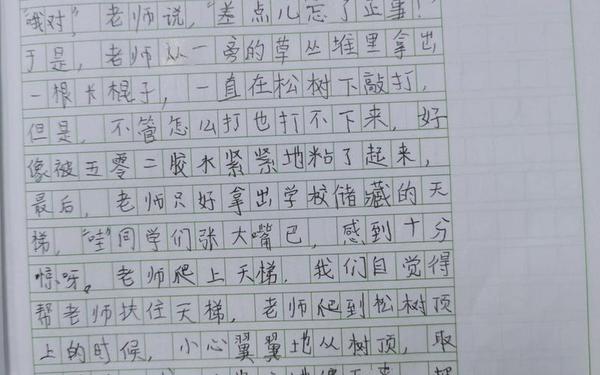 “哦对”，老师说，“差点儿忘了正事！”
于是，老师从一旁的草丛堆里拿出
一根长棍子，一直在松树下敲打，
但是，不管怎么打也打不下来，好
像被五零二胶水紧紧地粘了起来，
最后，老师只好拿出学校储藏的天
梯，“哇”同学们张大嘴巴，感到十分
惊呀。老师爬上天梯，我们自觉得
帮老师扶住天梯，老师爬到松树顶
上的时候，小心翼翼地从树顶，取